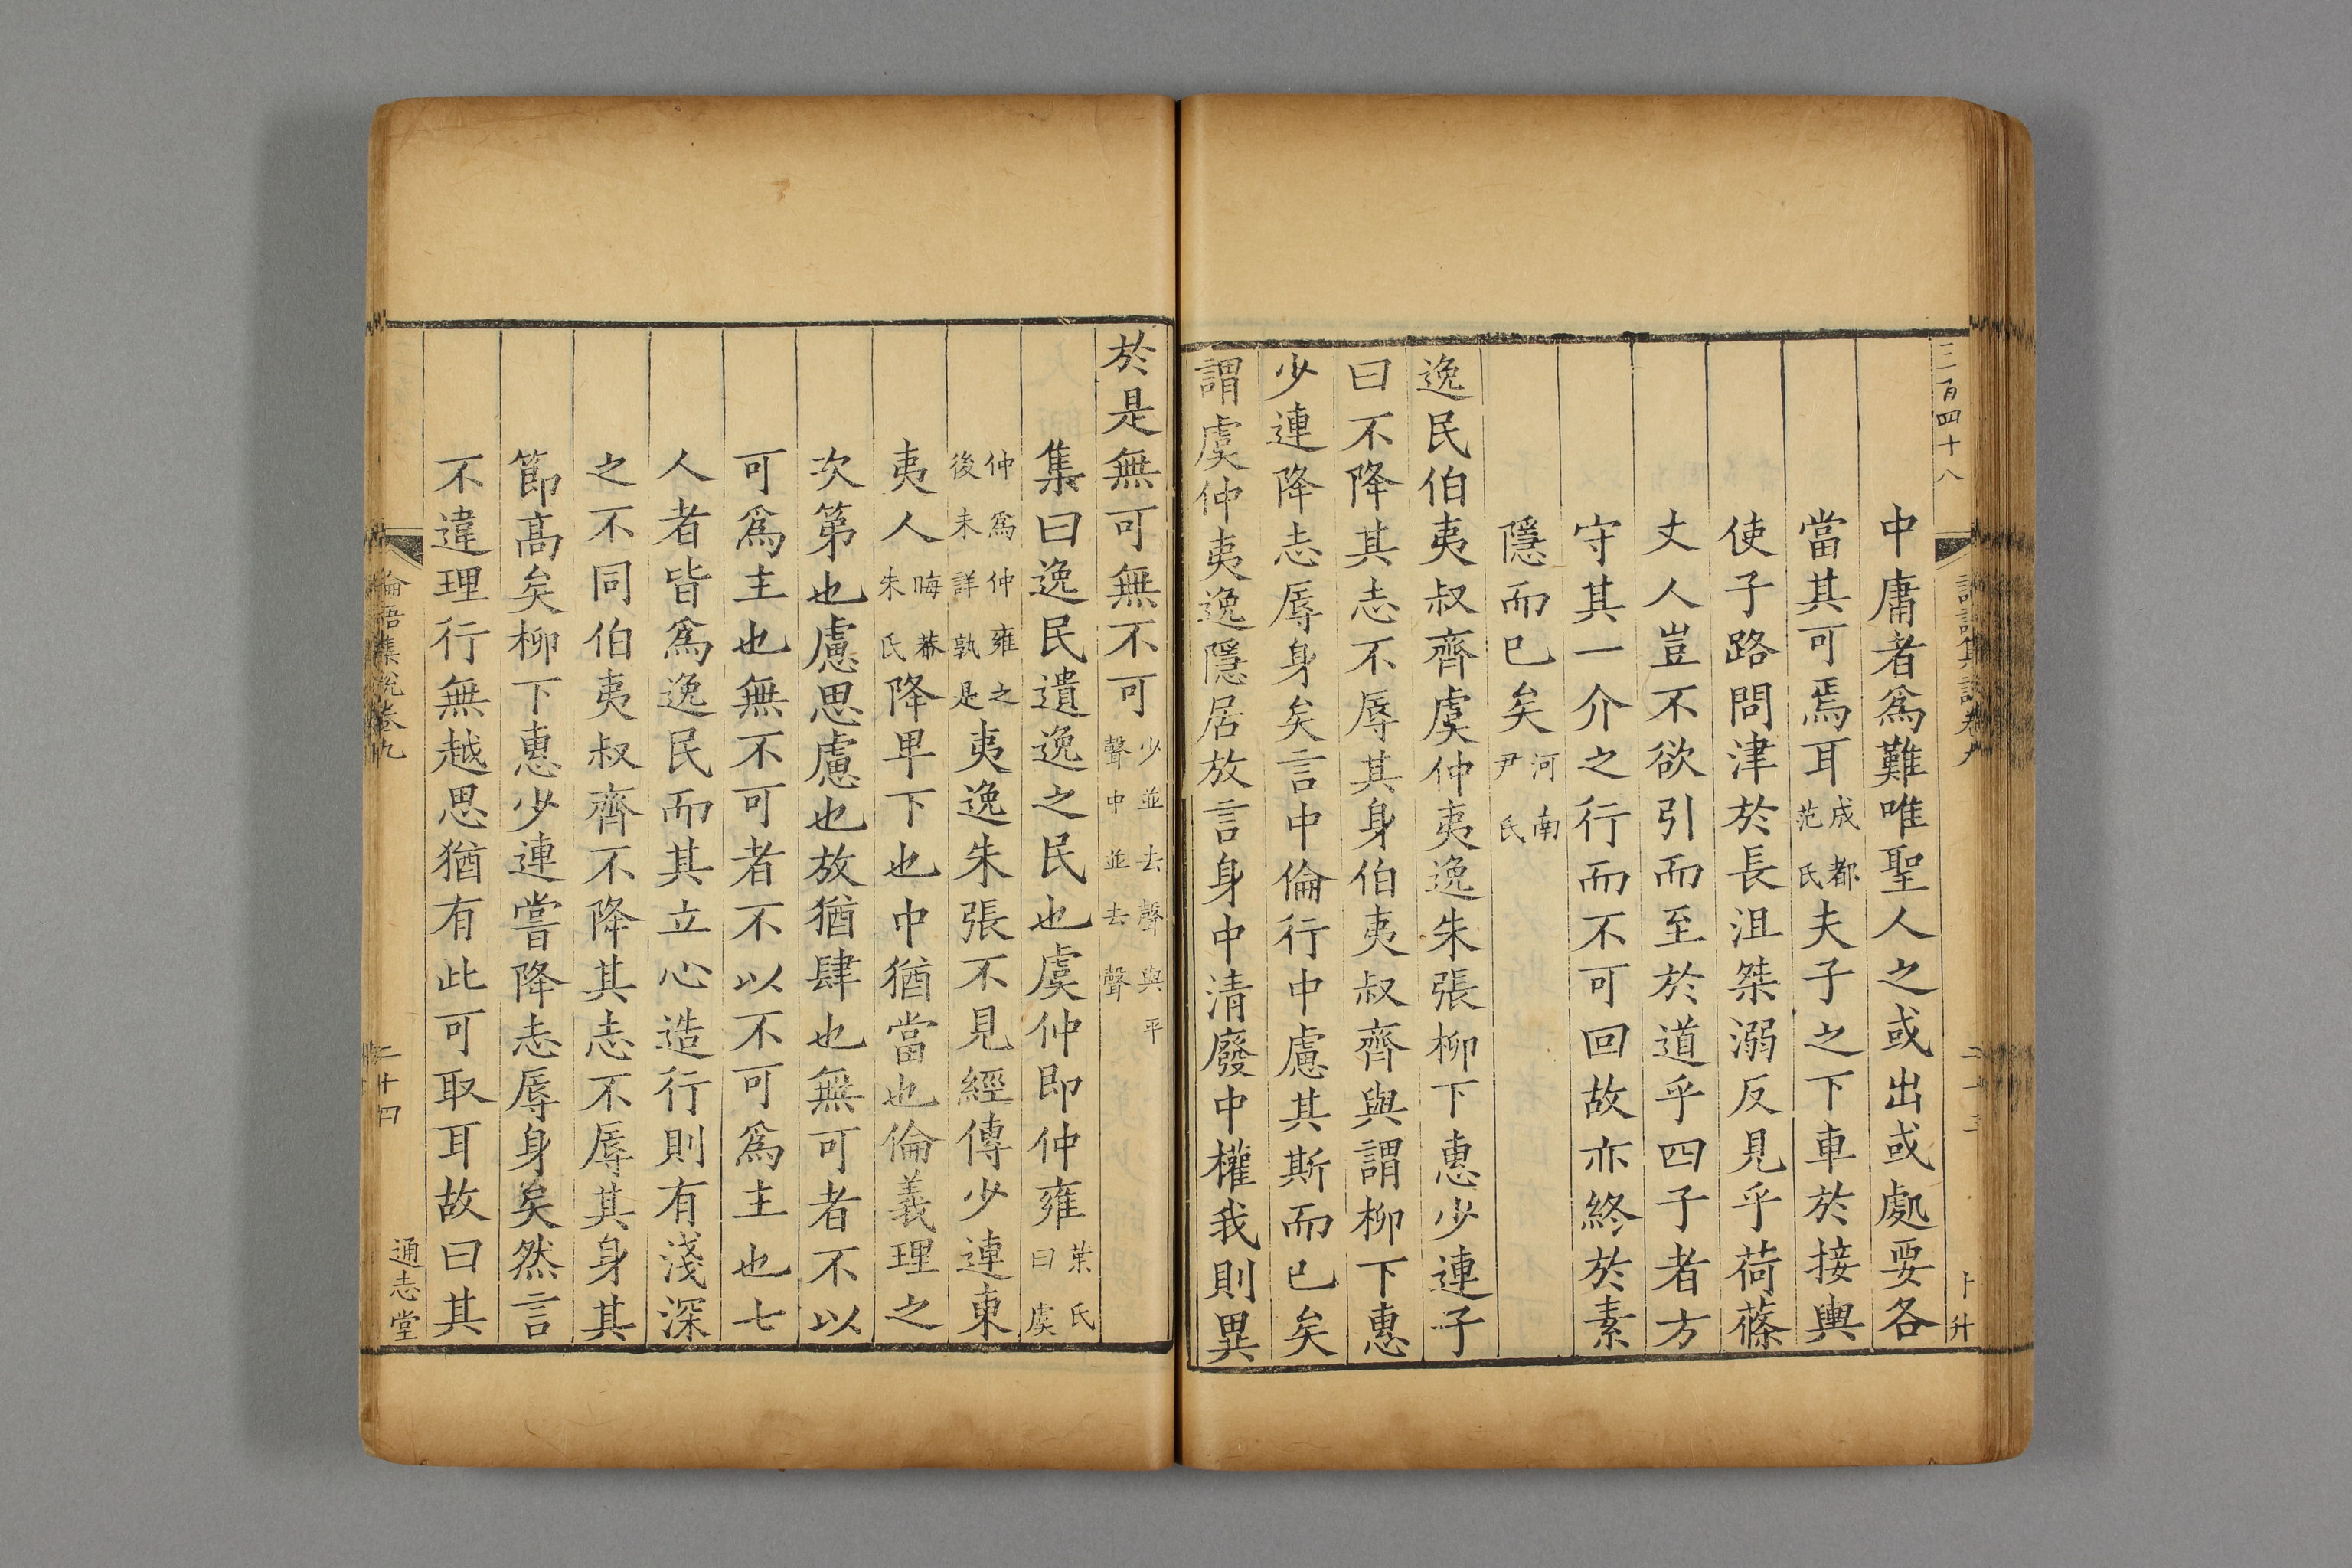 三百四十八
卜升
中庸者爲難唯聖人之或出或處要各
當其可焉耳成都范氏夫子之下車於接輿
使子路問津於長沮桀溺反見乎荷蓧
丈人豈不欲引而至於道乎四子者方
守其一介之行而不可回故亦終於素
隱而已矣河南尹氏
逸民伯夷叔齊虞仲夷逸朱張柳下惠少連子
曰不降其志不辱其身伯夷叔齊與謂柳下惠
少連降志辱身矣言中倫行中慮其斯而已矣
謂虞仲夷逸隱居放言身中清廢中權我則異
於是無可無不可少並去聲與平聲中並去聲
集曰逸民遺逸之民也虞仲即仲雍葉氏曰虞
仲爲仲雍之後未詳孰是夷逸朱張不見經傳少連東
夷人晦菴朱氏降卑下也中猶當也倫義理之
次第也慮思慮也放猶肆也無可者不以
可爲主也無不可者不以不可爲主也七
人者皆爲逸民而其立心造行則有淺深
之不同伯夷叔齊不降其志不辱其身其
節高矣柳下惠少連嘗降志辱身矣然言
不違理行無越思猶有此可取耳故曰其
論語集說卷九
二十四
通志堂